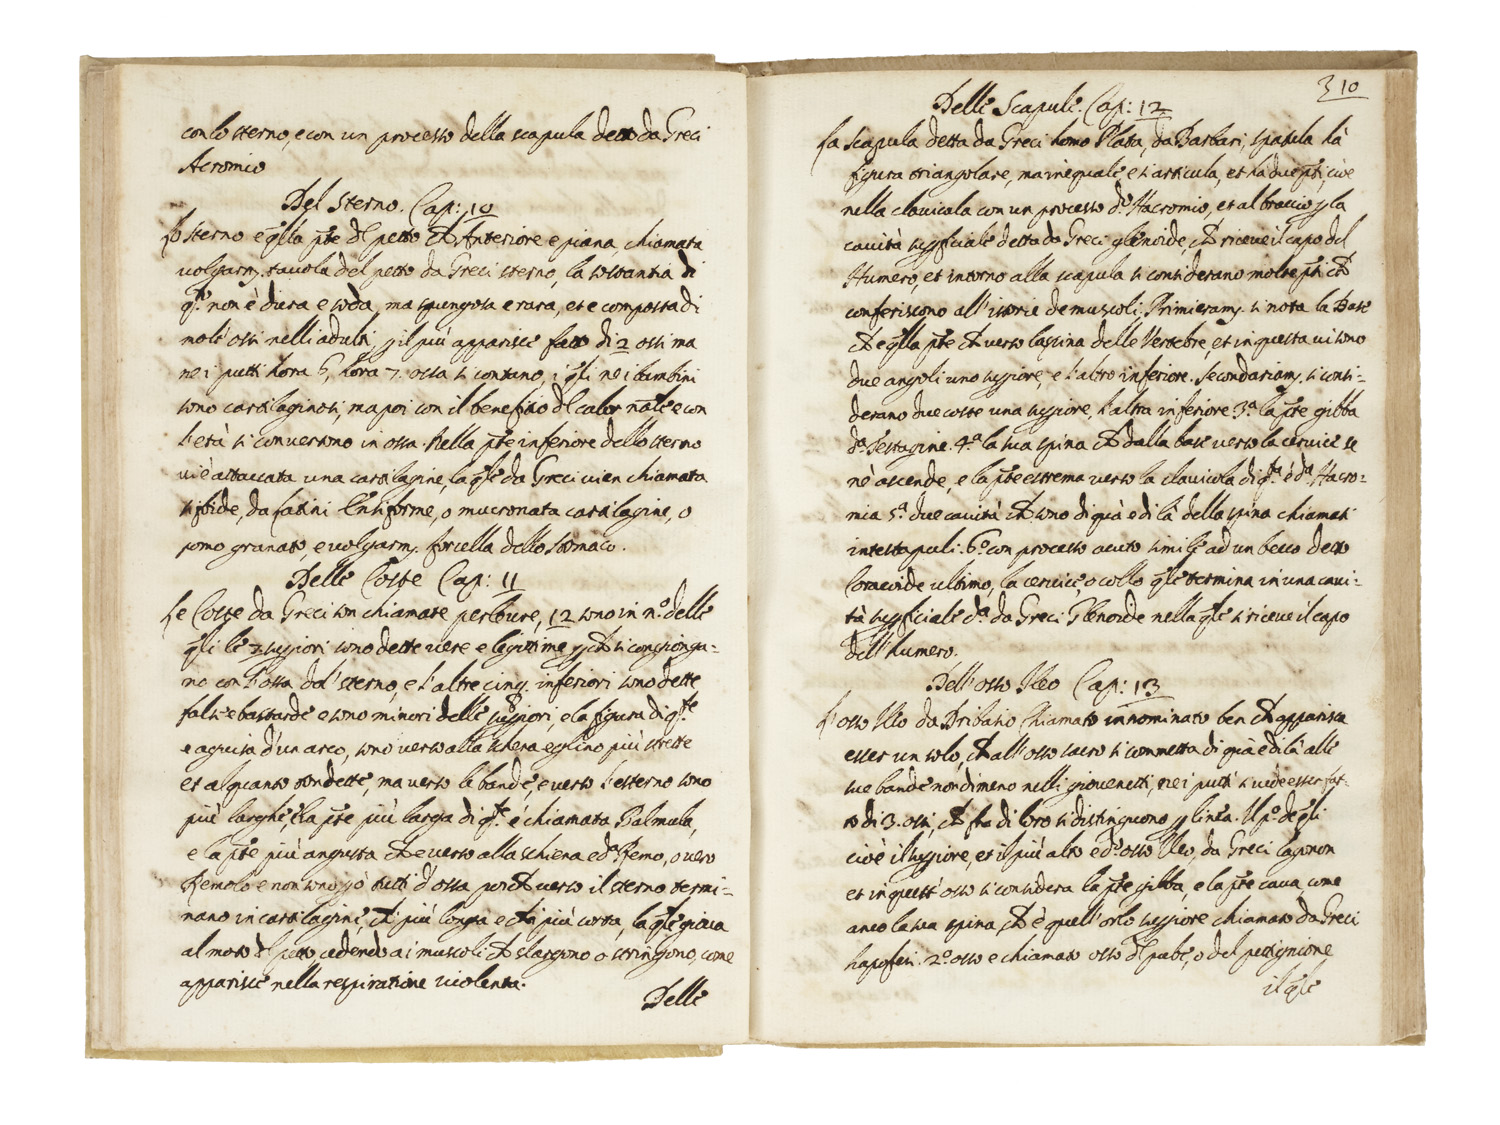 con lo sterno, e con un processo della scapula detto da Greci
Acromio
Del Sterno. Cap: 10
Lo sterno e qlla pte dl petto ch Anteriore e piana, chiamata
volgarm. tavola del petto da Greci sterno, la sostantia di
qto non è dura e soda, ma spungosa e rara, et e composta di
molt'ossi nelli adulti, p il più apparisce fatto di 2 ossi ma
nei putti hora 6, hora 7. ossa si contano, i qli nei bambini
sono cartilaginosi, ma poi con il benefitio dl calor nale e con
l'età si convertono in ossa. Nella pte inferiore dello sterno
vi è attaccata una cartilagine, la qle da Greci vien chiamata
sifoide, da Latini Ensiforme, o mucronata cartilagine, o
pomo granato, e volgarm. forcella dello stomaco.
Delle Coste Cap: 11
Le Coste da Greci son chiamate perleure, 12 sono in n.o delle
qli le 7 supiori sono dette vere e legittime p ch si congiongu-
no con l'ossa del sterno, e l'altre cinq. inferiori sono dette
falsi e bastarde e sono minori delle supiori, e la figura di qte
e aguisa d'un arco, sono verso alla schena eglino più strette
et alquanto tondette, ma verso le bande, e verso l'esterno sono
più larghe, e la pte più larga di qte é chiamata Palmula,
e la pte più angusta ch e verso alla schiena e da Remo, o vero
Remolo e non sono pò tutti d'ossa perch verso il sterno termi-
nano in cartilagini, chi più longa e chi più corta, la qle giova
al moto dl petto, cedendo ai muscoli ch slargono o stringono, come
apparisce nella respiratione violenta.
Delle
310
Delle Scapule. Cap: 12
La Scapula detta da Greci homo Plata, da Barbari, spatula hà
figura triangolare, ma inequale e si articula, et ha due pti, cioè
nella clavicala con un processo do Hacromio, et al braccio p la
cavità supficiale detta da Greci glenoide, ch riceve il capo del
Humero, et intorno alla scapula si considerano molte pti ch
conferiscono all'istorie de muscoli. Primieram. si nota la Base
ch e qlla pte ch verso la spina delle Vertebre, et in questa vi sono
due angoli uno supiore, e l'altro inferiore. Secondariam. si consi-
derano due coste una supiore, l'altra inferiore 3.a la pte gibba
da Testagine. 4.a la sua spina ch dalla base verso la cervice se
nè ascende, e la pte estrema verso la clavicola di qta é da Hacro-
mia 5.a due cavità ch sono di quà e di là della spina chiamati
interscapuli. 6.o con processo acuto simile ad un becco detto
Coracoide ultimo, la cervice, o collo qle termina in una cavi-
tà supficiale da da Greci Glenoide nella qle si riceve il capo
dell'humero.
Dell'osso Ileo Cap: 13
L'osso Illo da Dribasio Chiamato innominato ben ch apparisca
esser un solo, ch all'osso sacro si commetta di quà e di là alle
sue bande nondimeno nelli giovenetti, nei putti si vede esser fat-
to di 3. ossi, ch fra di loro si distinguono p linea. Il p.o de qli
cioè il supiore, et il più alto e do osso Ileo, da Greci lagonon
et in quest'osso si considera la pte gibba, e la pte cava, come
anco la sua spina ch è quell'orlo supiore chiamato da Greci
hapofisi. 2.o osso e chiamato osso dl pube, o del pettignione
il qle